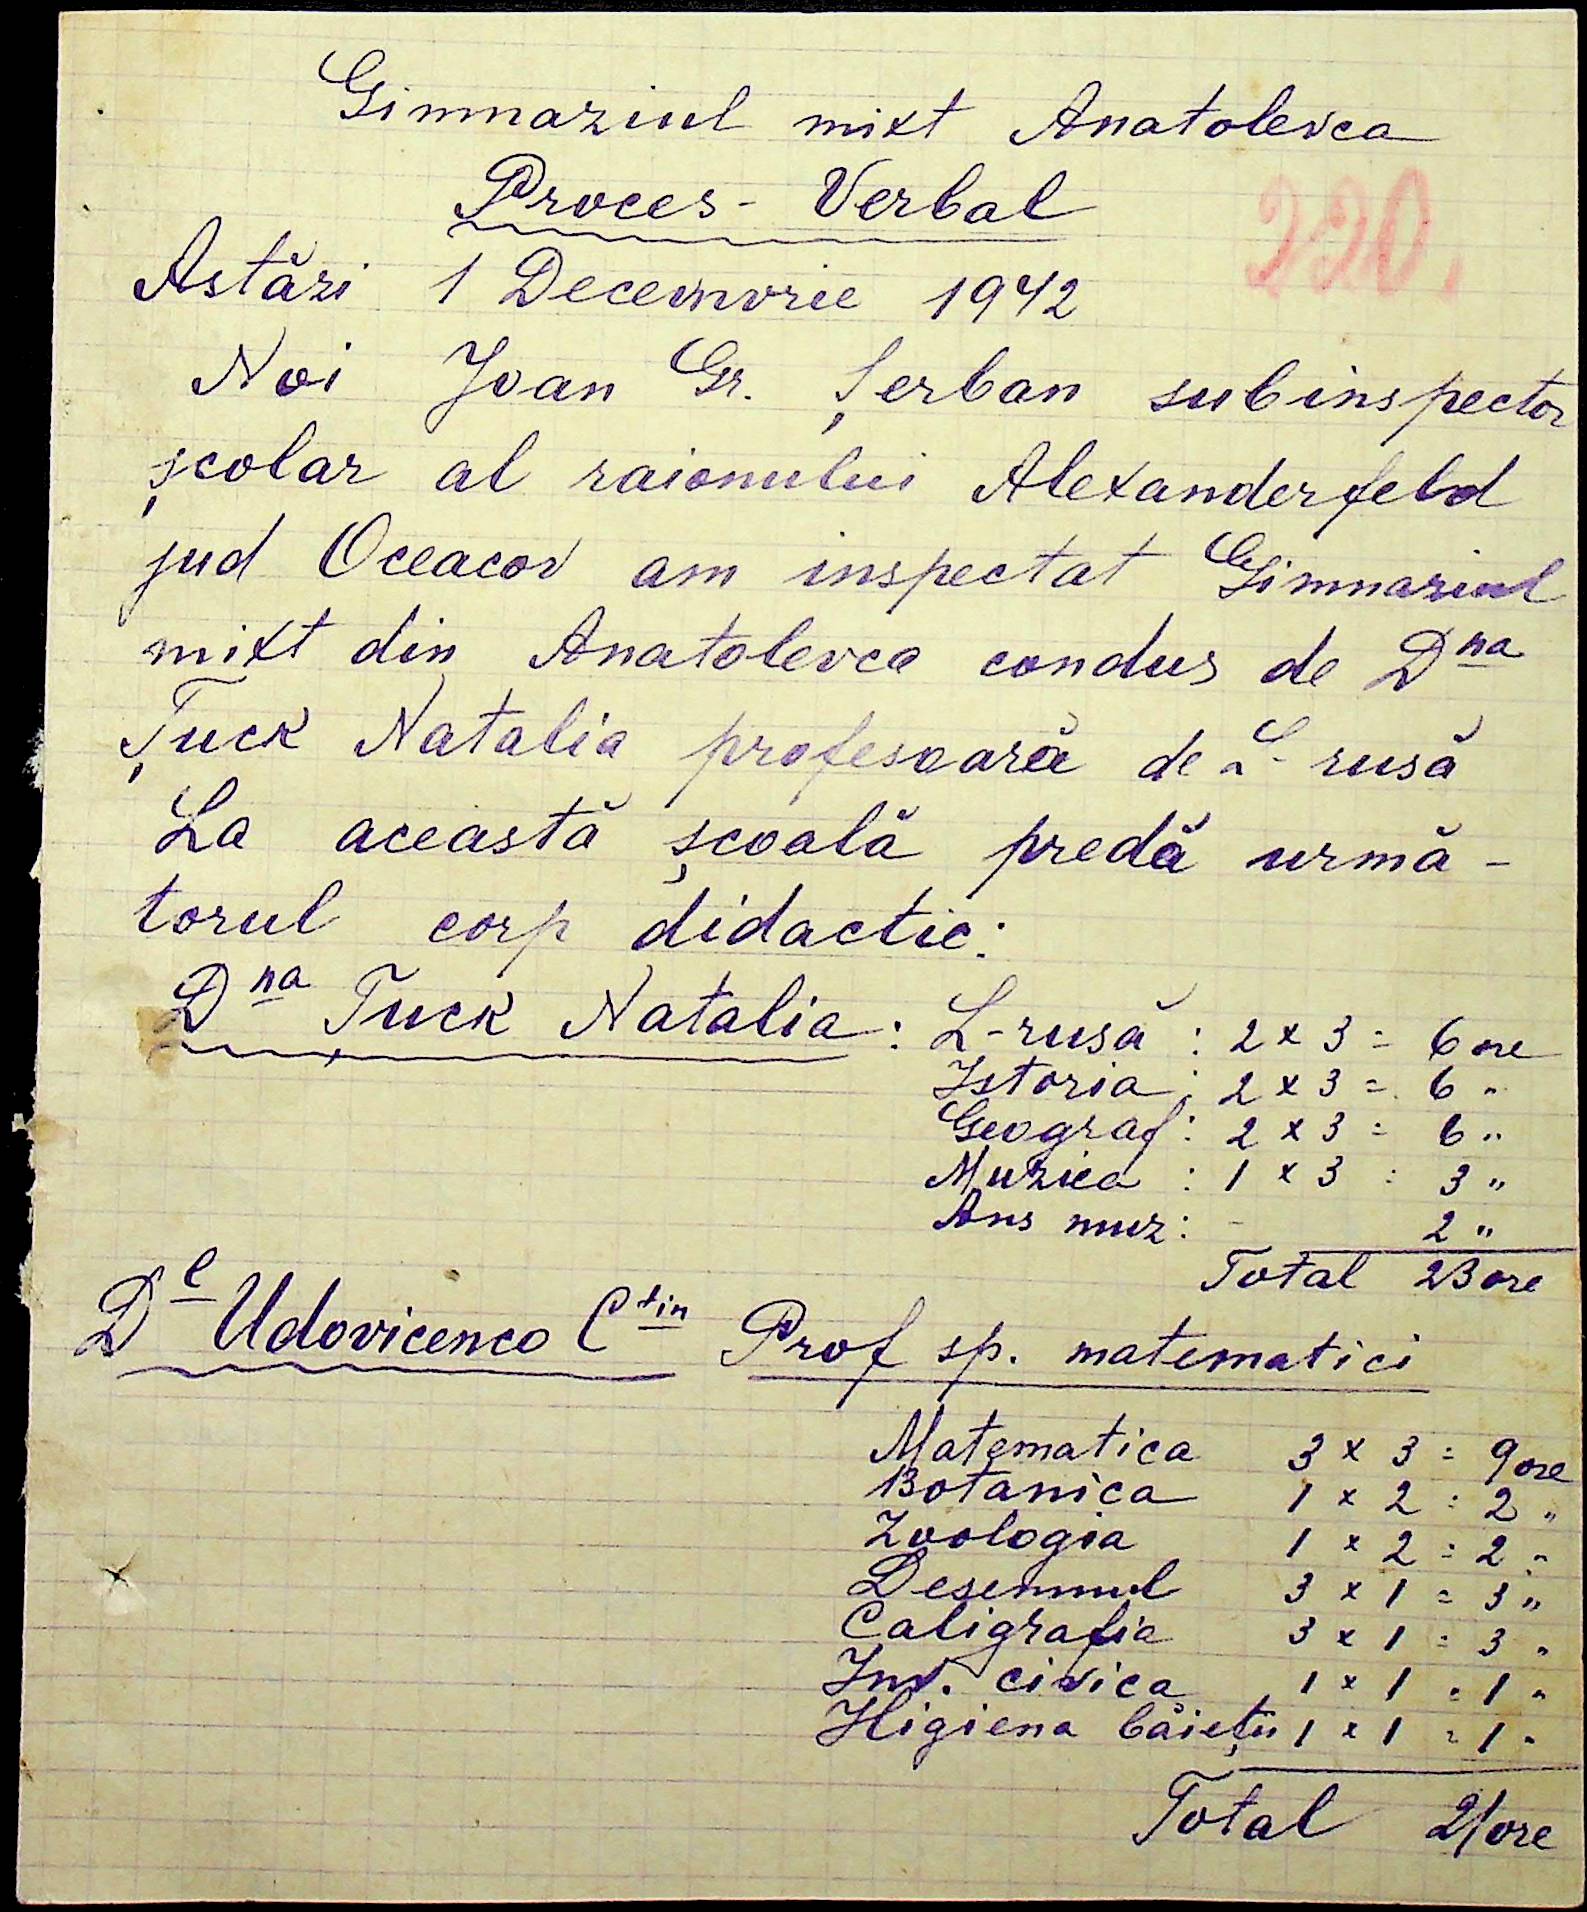 Gimnaziul mixt Anatolevca
Proces-Verbal
220.
Astăzi 1 Decemvrie 1942
Noi Ioan Gr. Șerban subinspector
școlar al raionului Alexanderfeld
jud Oceacov am inspectat Gimnaziul
mixt din Anatolevca condus de Dna
Țuck Natalia profesoară de L-rusă
La această școală predă urmă-
torul corp didactic:
Dna Tuck Natalia: L-rusă: 2 x 3 = 6 ore
Istoria: 2 x 3 = 6 "
Geograf: 2 x 3 = 6 "
Muzica: 1 x 3 = 3 "
Ans muz: - 2 "
Total 23 ore
Dl Udovicenco Ctin Prof sp. matematici
Matematica 3 x 3 = 9 ore
Botanica 1 x 2 = 2 "
Zoologia 1 x 2 = 2 "
Desemnul 3 x 1 = 3 "
Caligrafia 3 x 1 = 3 "
Inv. civica 1 x 1 = 1 "
Higiena băieții 1 x 1 = 1 "
Total 21 ore